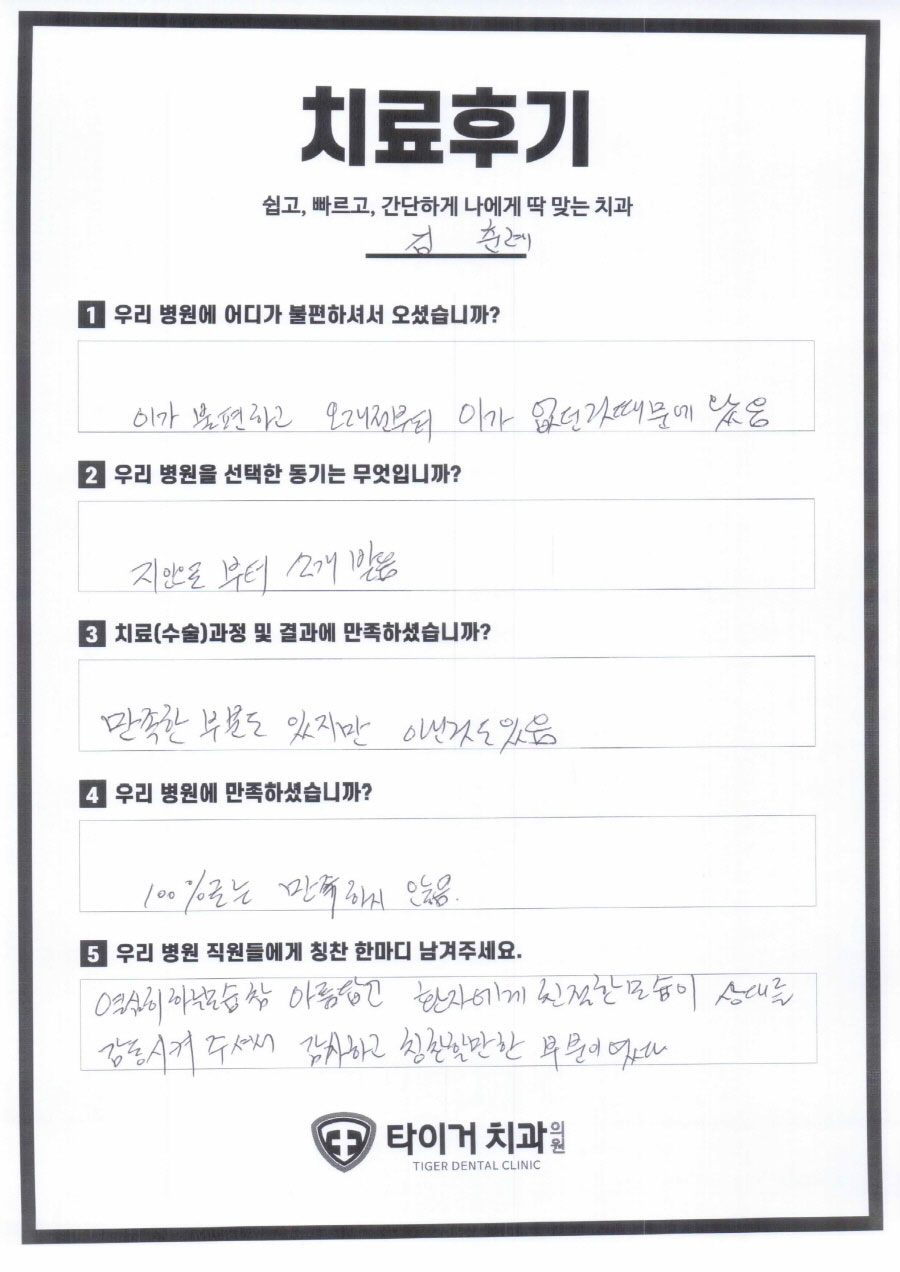 치료후기
쉽고, 빠르고, 간단하게 나에게 딱 맞는 치과
김 춘례
1 우리 병원에 어디가 불편하셔서 오셨습니까?
이가 불편하고 오래전부터 이가 없던것때문에 왔음
2 우리 병원을 선택한 동기는 무엇입니까?
지인으로 부터 소개 받음
3 치료(수술)과정 및 결과에 만족하셨습니까?
만족한 부분도 있지만 아닌것도 있음
4 우리 병원에 만족하셨습니까?
100%로는 만족하지 않음.
5 우리 병원 직원들에게 칭찬 한마디 남겨주세요.
열심히 하는모습 참 아름답고 환자에게 친절한 모습이 상대를
감동시켜 주셔서 감사하고 칭찬할만한 부분이었다
타이거 치과의원
TIGER DENTAL CLINIC